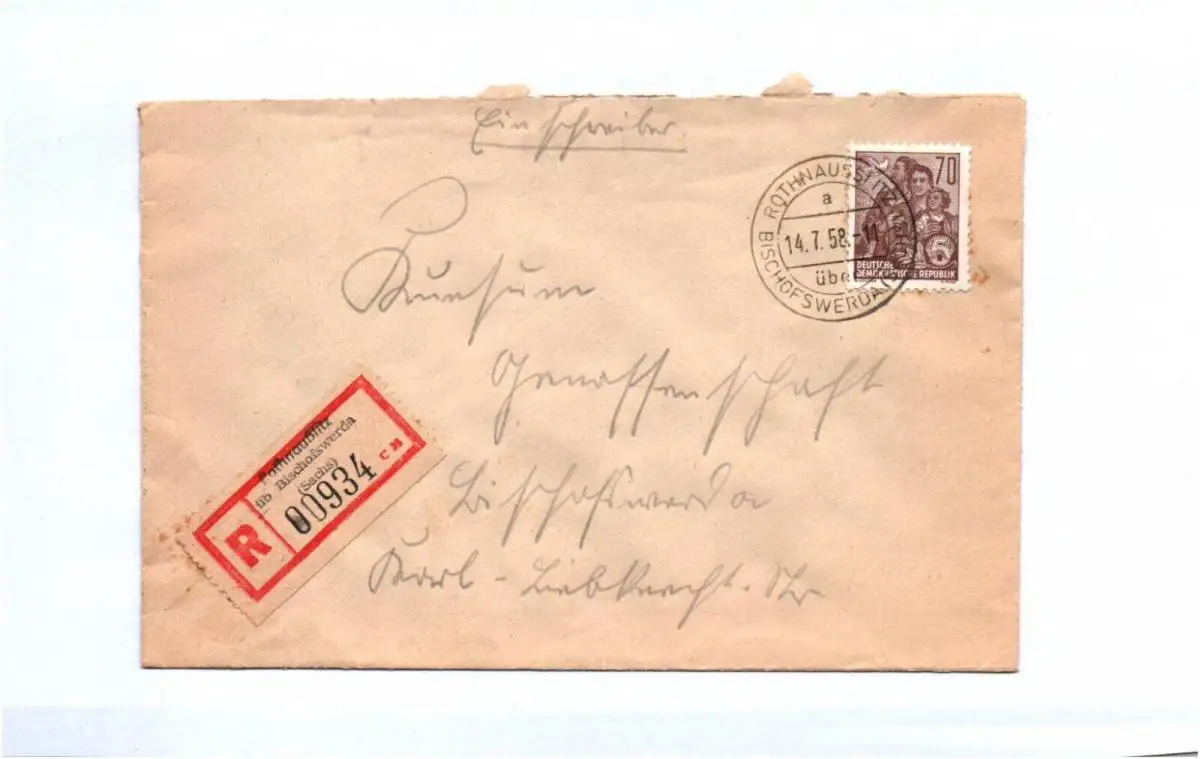 Einschreiben.
70
DEUTSCHE
DEMOKRATISCHE REPUBLIK
ROTHNAUSSLITZ
a
14.7.58.-11
übe
BISCHOFSWERDA
Kunsum
Genossenschaft
Bischofswerda
Karl-Liebknecht-Str
Rothnaußlitz
üb Bischofswerda
(Sachs)
R
00934
c